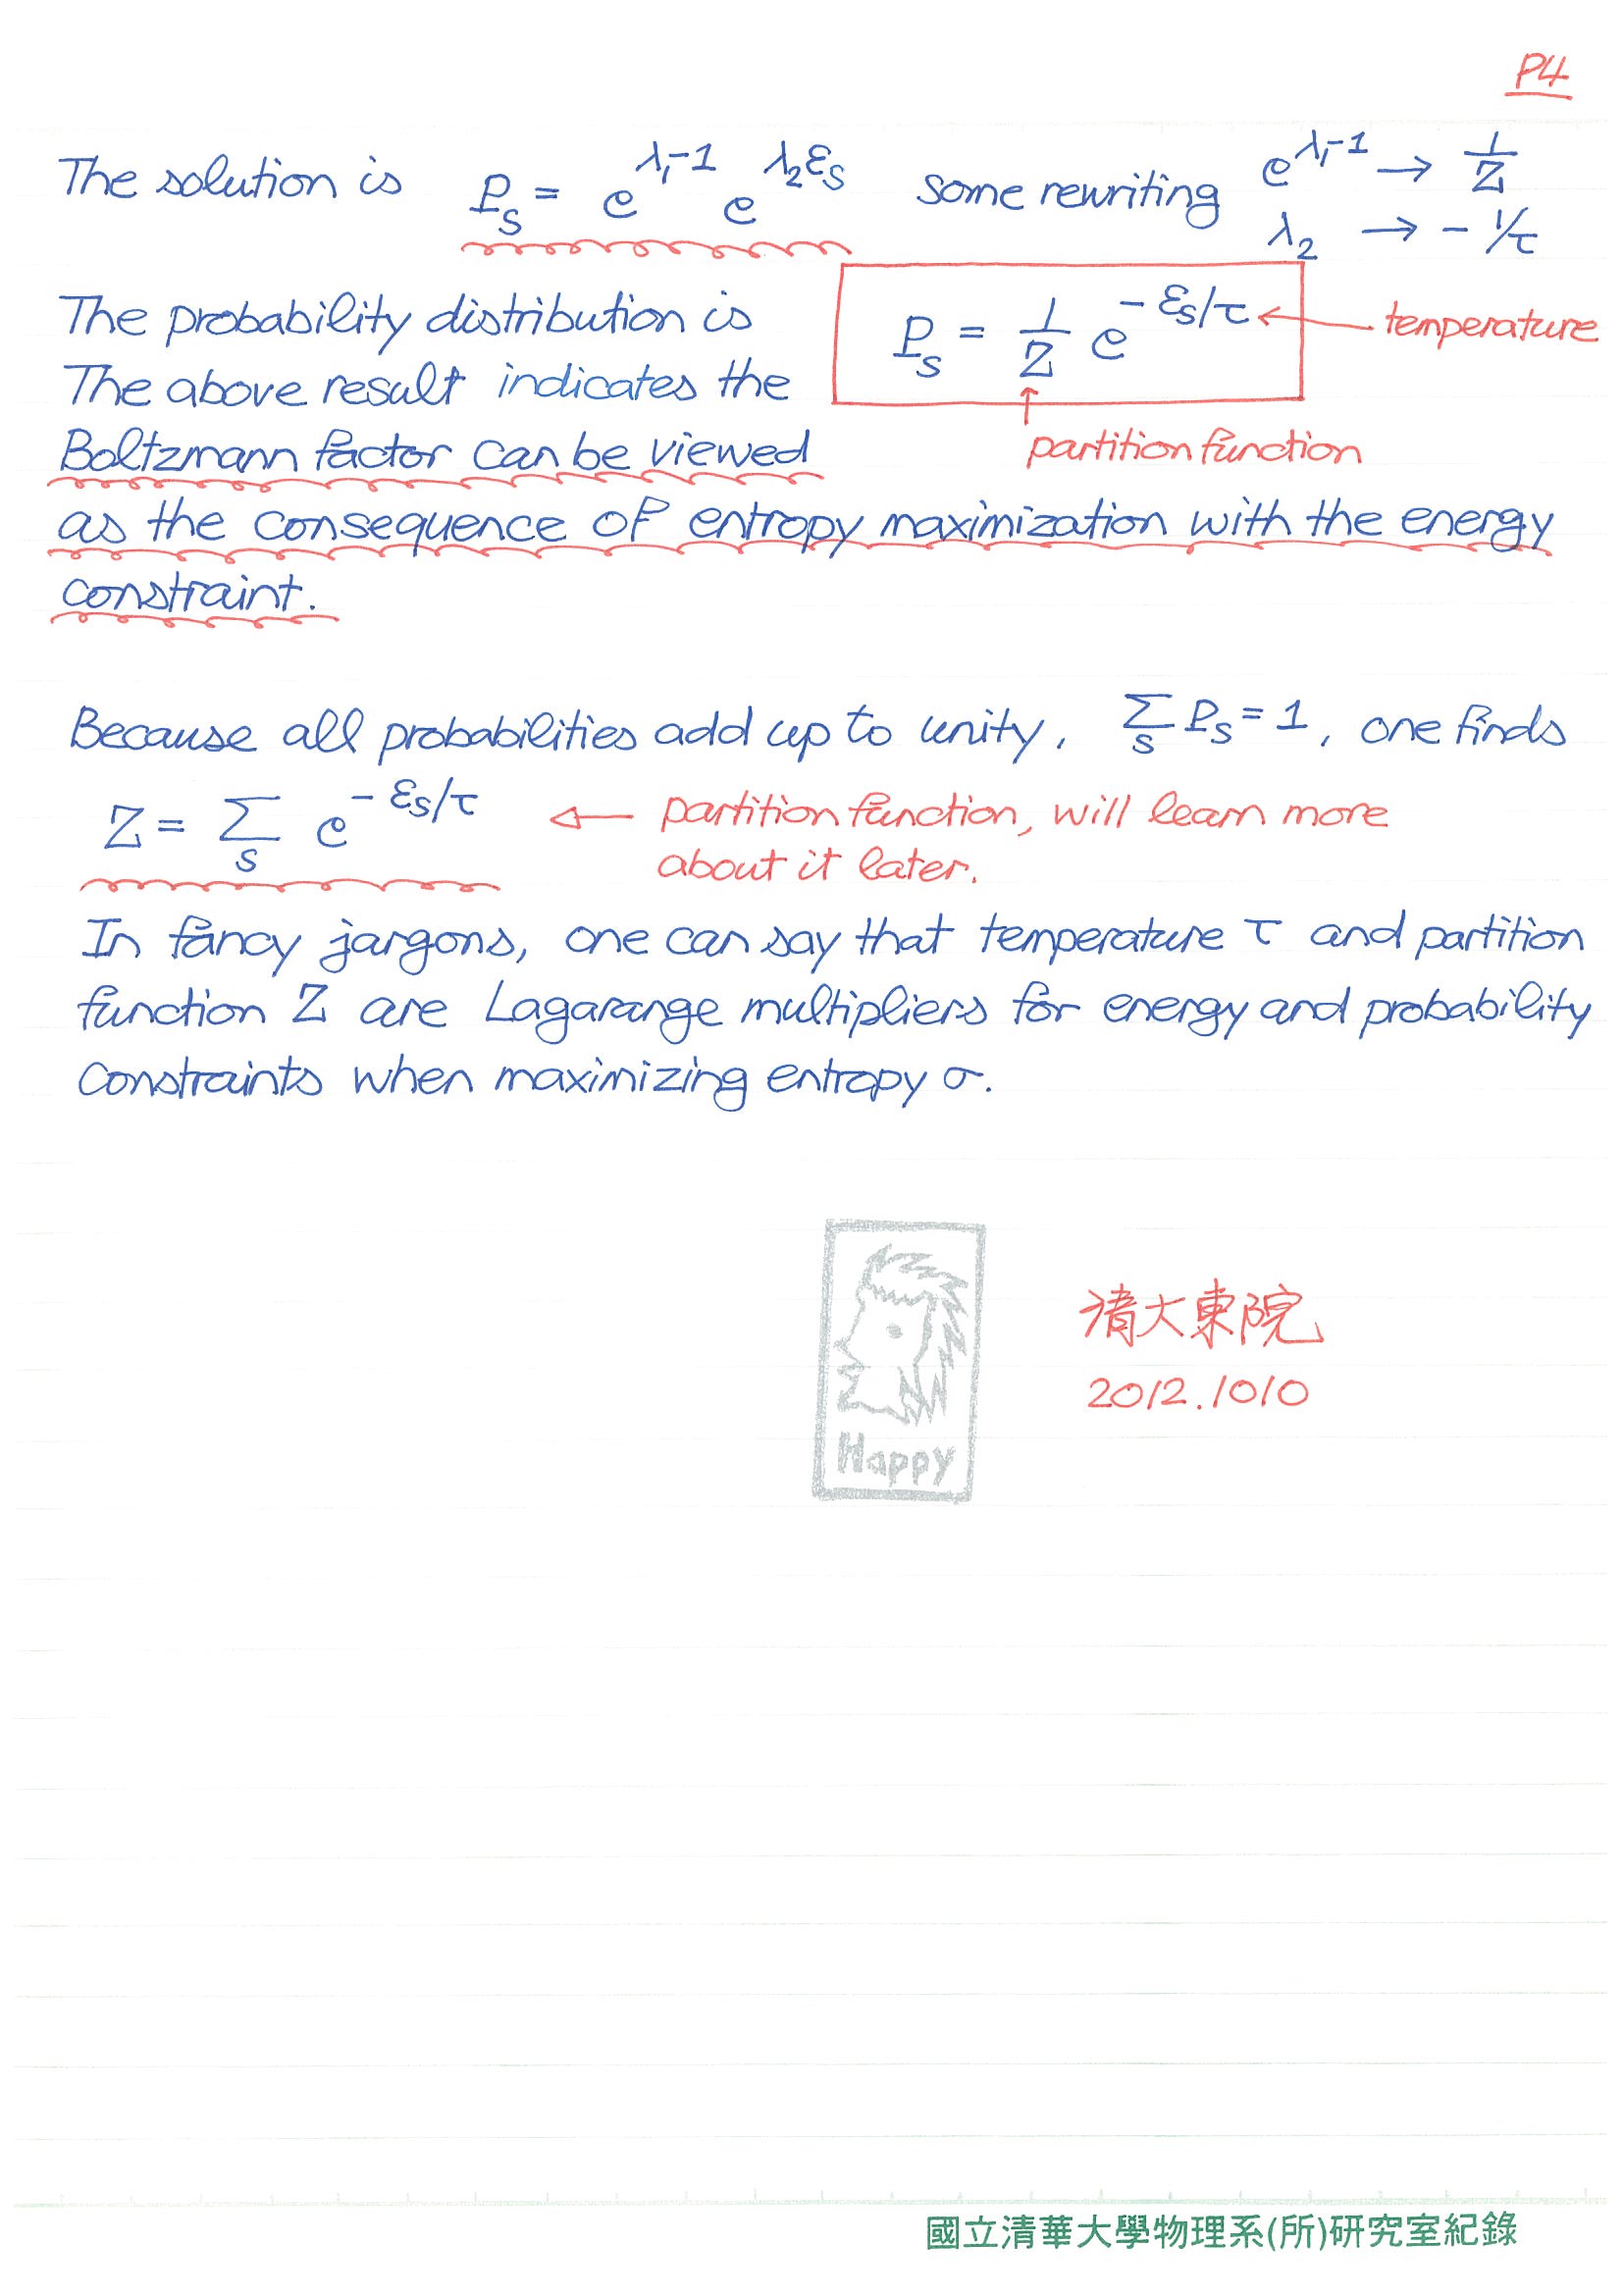 P4
The solution is P_s = e^{λ₁-1} e^{λ₂ε_s} some rewriting e^{λ₁-1} → 1/Z
λ₂ → - 1/τ
The probability distribution is P_s = 1/Z e^{-ε_s/τ} ← temperature
The above result indicates the
Boltzmann factor can be viewed ↑ partition function
as the consequence of entropy maximization with the energy
constraint.
Because all probabilities add up to unity, Σ_s P_s = 1, one finds
Z = Σ_s e^{-ε_s/τ} ← partition function, will learn more
about it later.
In fancy jargons, one can say that temperature τ and partition
function Z are Lagarange multipliers for energy and probability
constraints when maximizing entropy σ.
清大東院
2012.1010
Happy
國立清華大學物理系(所)研究室紀錄